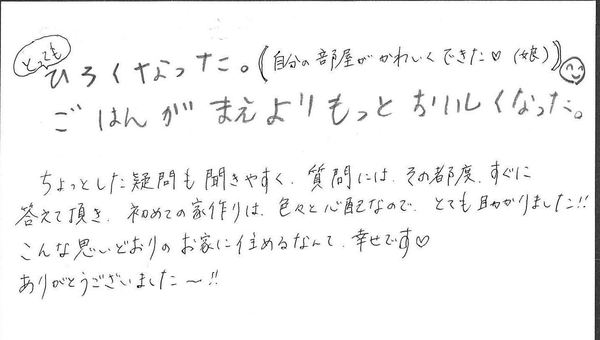 とっても
ひろくなった。(自分の部屋がかわいくできた♡(娘))
ごはんがまえよりもっとおいしくなった。
ちょっとした疑問も聞きやすく、質問には、その都度、すぐに
答えて頂き、初めての家作りは、色々と心配なので、とても助かりました!!
こんな思いどおりのお家に住めるなんて、幸せです♡
ありがとうございました〜!!